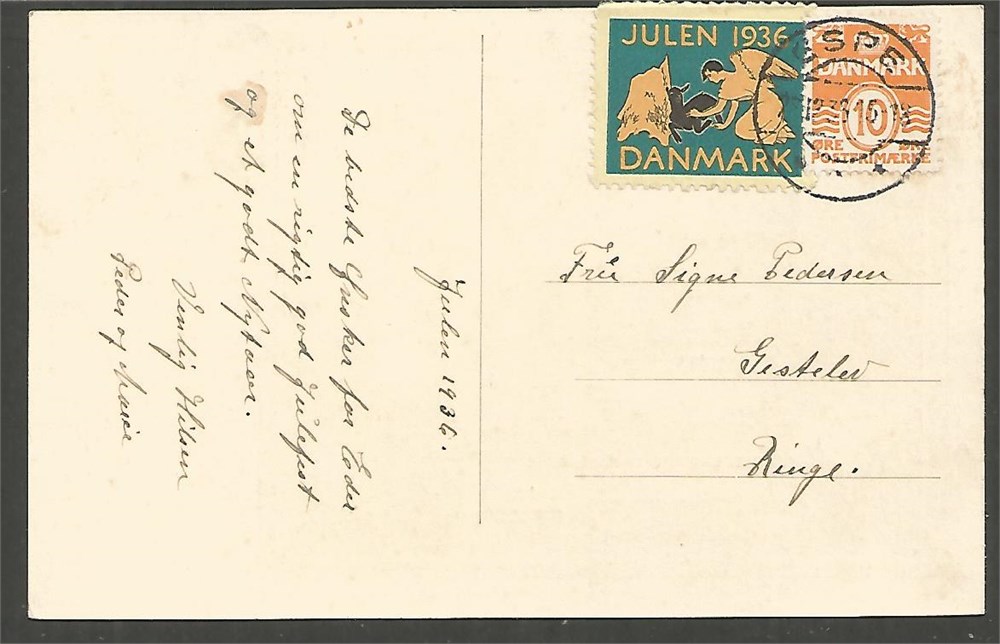 JULEN 1936
DANMARK
DANMARK
10
ØRE ØRE
POSTFRIMÆRKE
Julen 1936.
De bedste Ønsker for Eder
om en rigtig god Julefest
og et godt Nytaar.
Venlig Hilsen
Peder og Marie
Frk Signe Pedersen
Gestelev
Ringe.